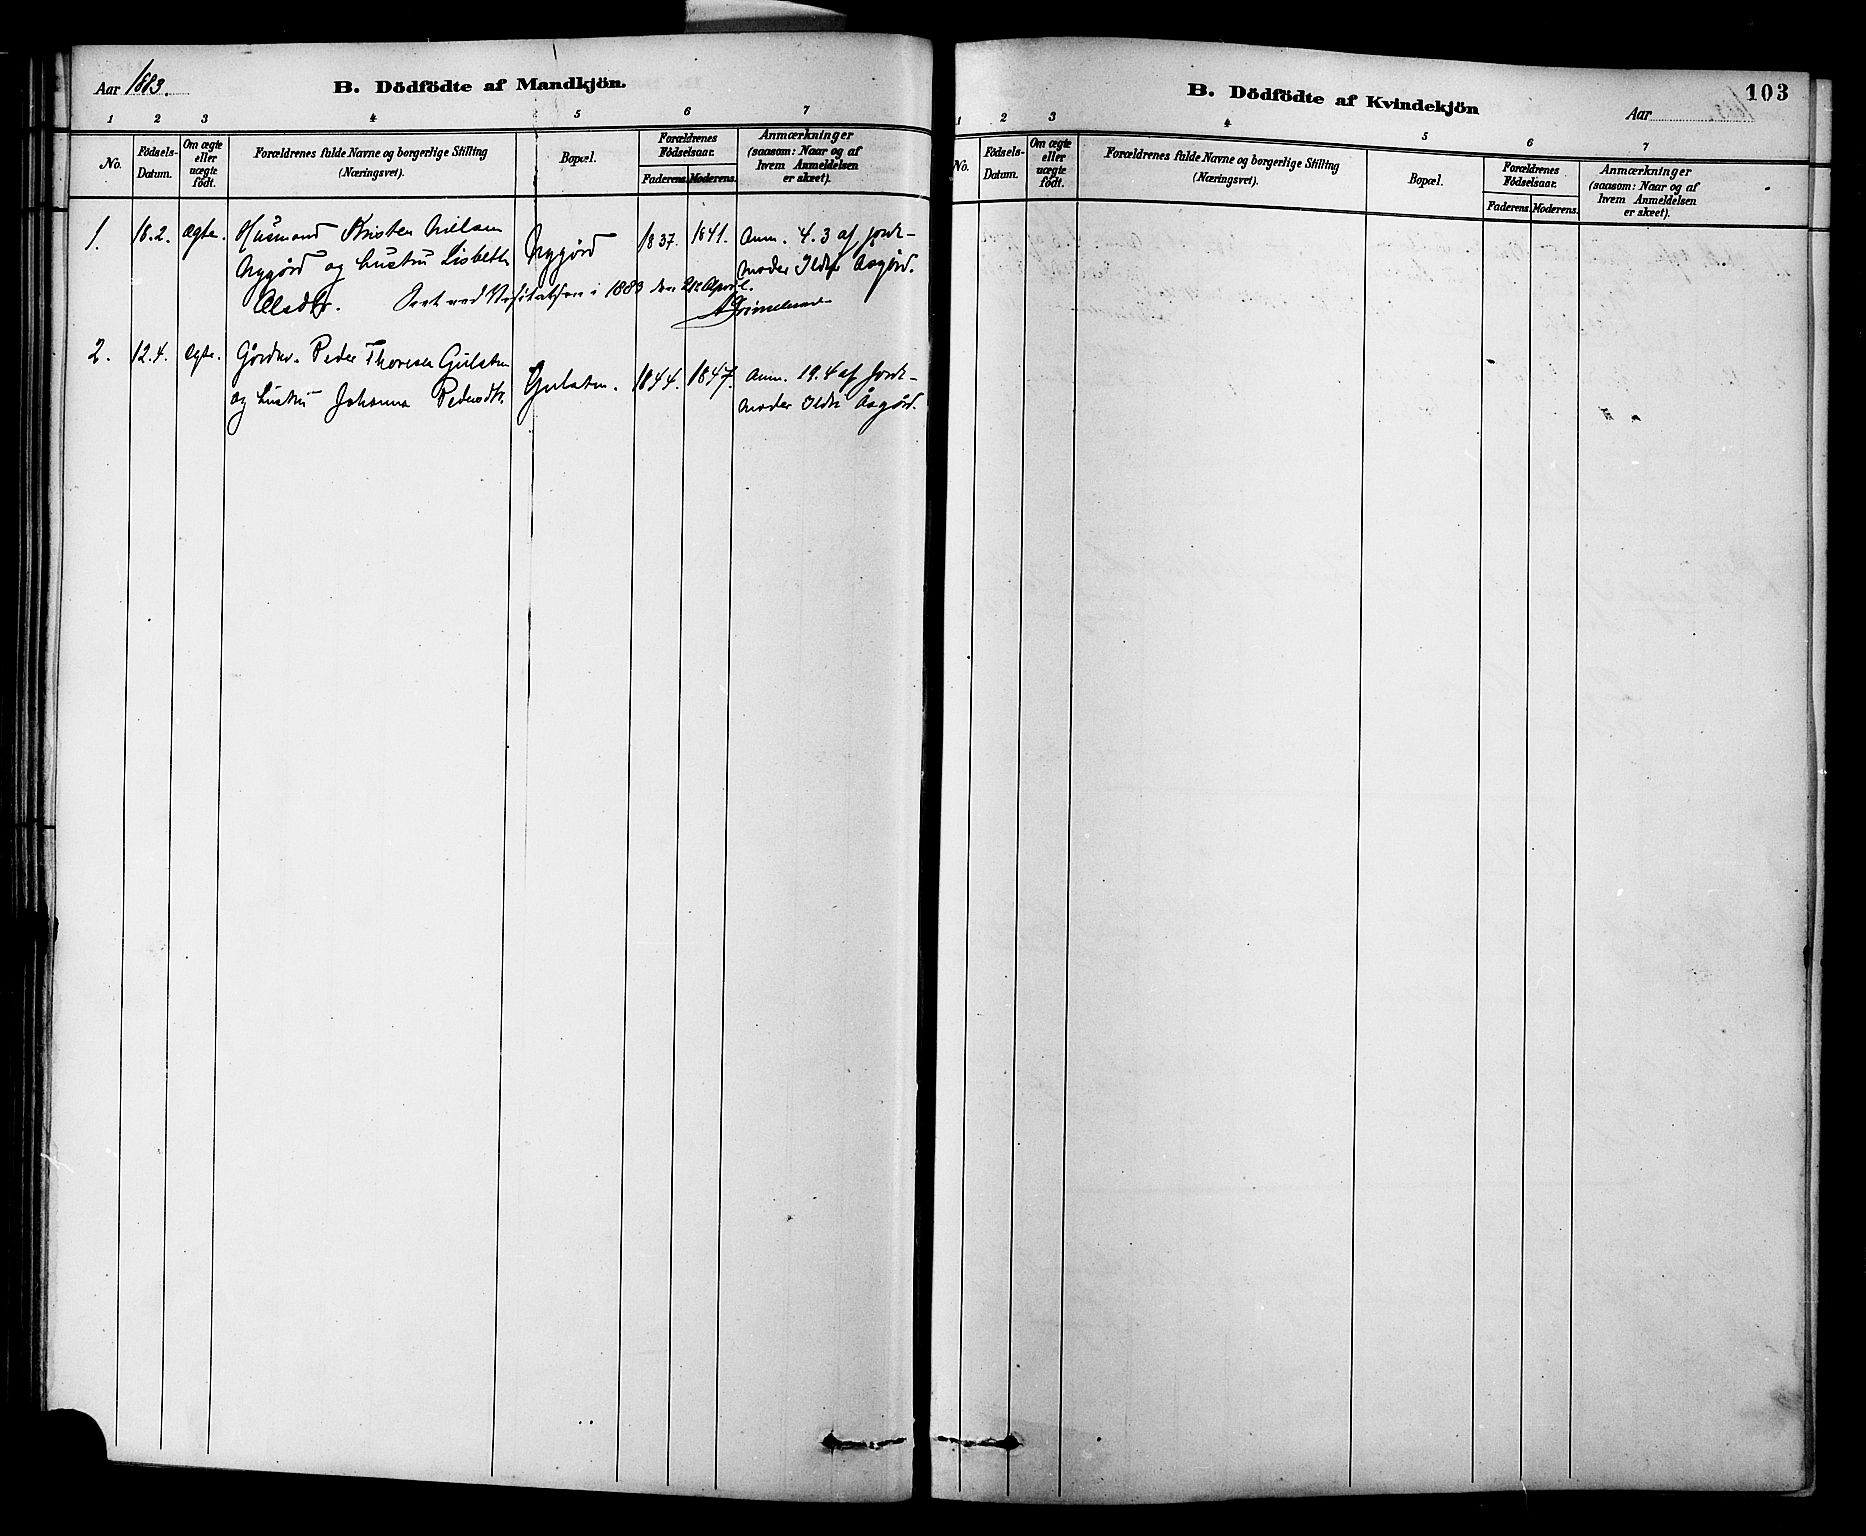 Aar 1883.
B. Dödfödte af Mandkjön.
1 2 3 4 5 6 7
No.
Födsels-Datum.
Om ægte eller uægte födt.
Forældrenes fulde Navne og borgerlige Stilling (Næringsvei).
Bopæl.
Forældrenes Födselsaar.
Faderens. Moderens.
Anmærkninger (saasom: Naar og af hvem Anmeldelsen er skeet).
1. 18.2. ægte. Husmand Kristen Nielsen Nygjørd 1837. 1841. Anm. 4.3 af Jorde-
Nygjørd og hustru Lisbeth moder Asgjørd.
Olsdtr. ved Visitatsen i 1883 den 21de April.
2. 12.4. ægte. Peder Thoresen Gulsten Gulsten. 1844. 1847. Anm. 19.4 af Jorde-
og hustru Johanna Pedersdtr. moder Åsgjørd.
B. Dödfödte af Kvindekjön
Aar
103
1 2 3 4 5 6 7
No.
Födsels-Datum.
Om ægte eller uægte födt.
Forældrenes fulde Navne og borgerlige Stilling (Næringsvei).
Bopæl.
Forældrenes Födselsaar.
Faderens. Moderens.
Anmærkninger (saasom: Naar og af hvem Anmeldelsen er skeet).